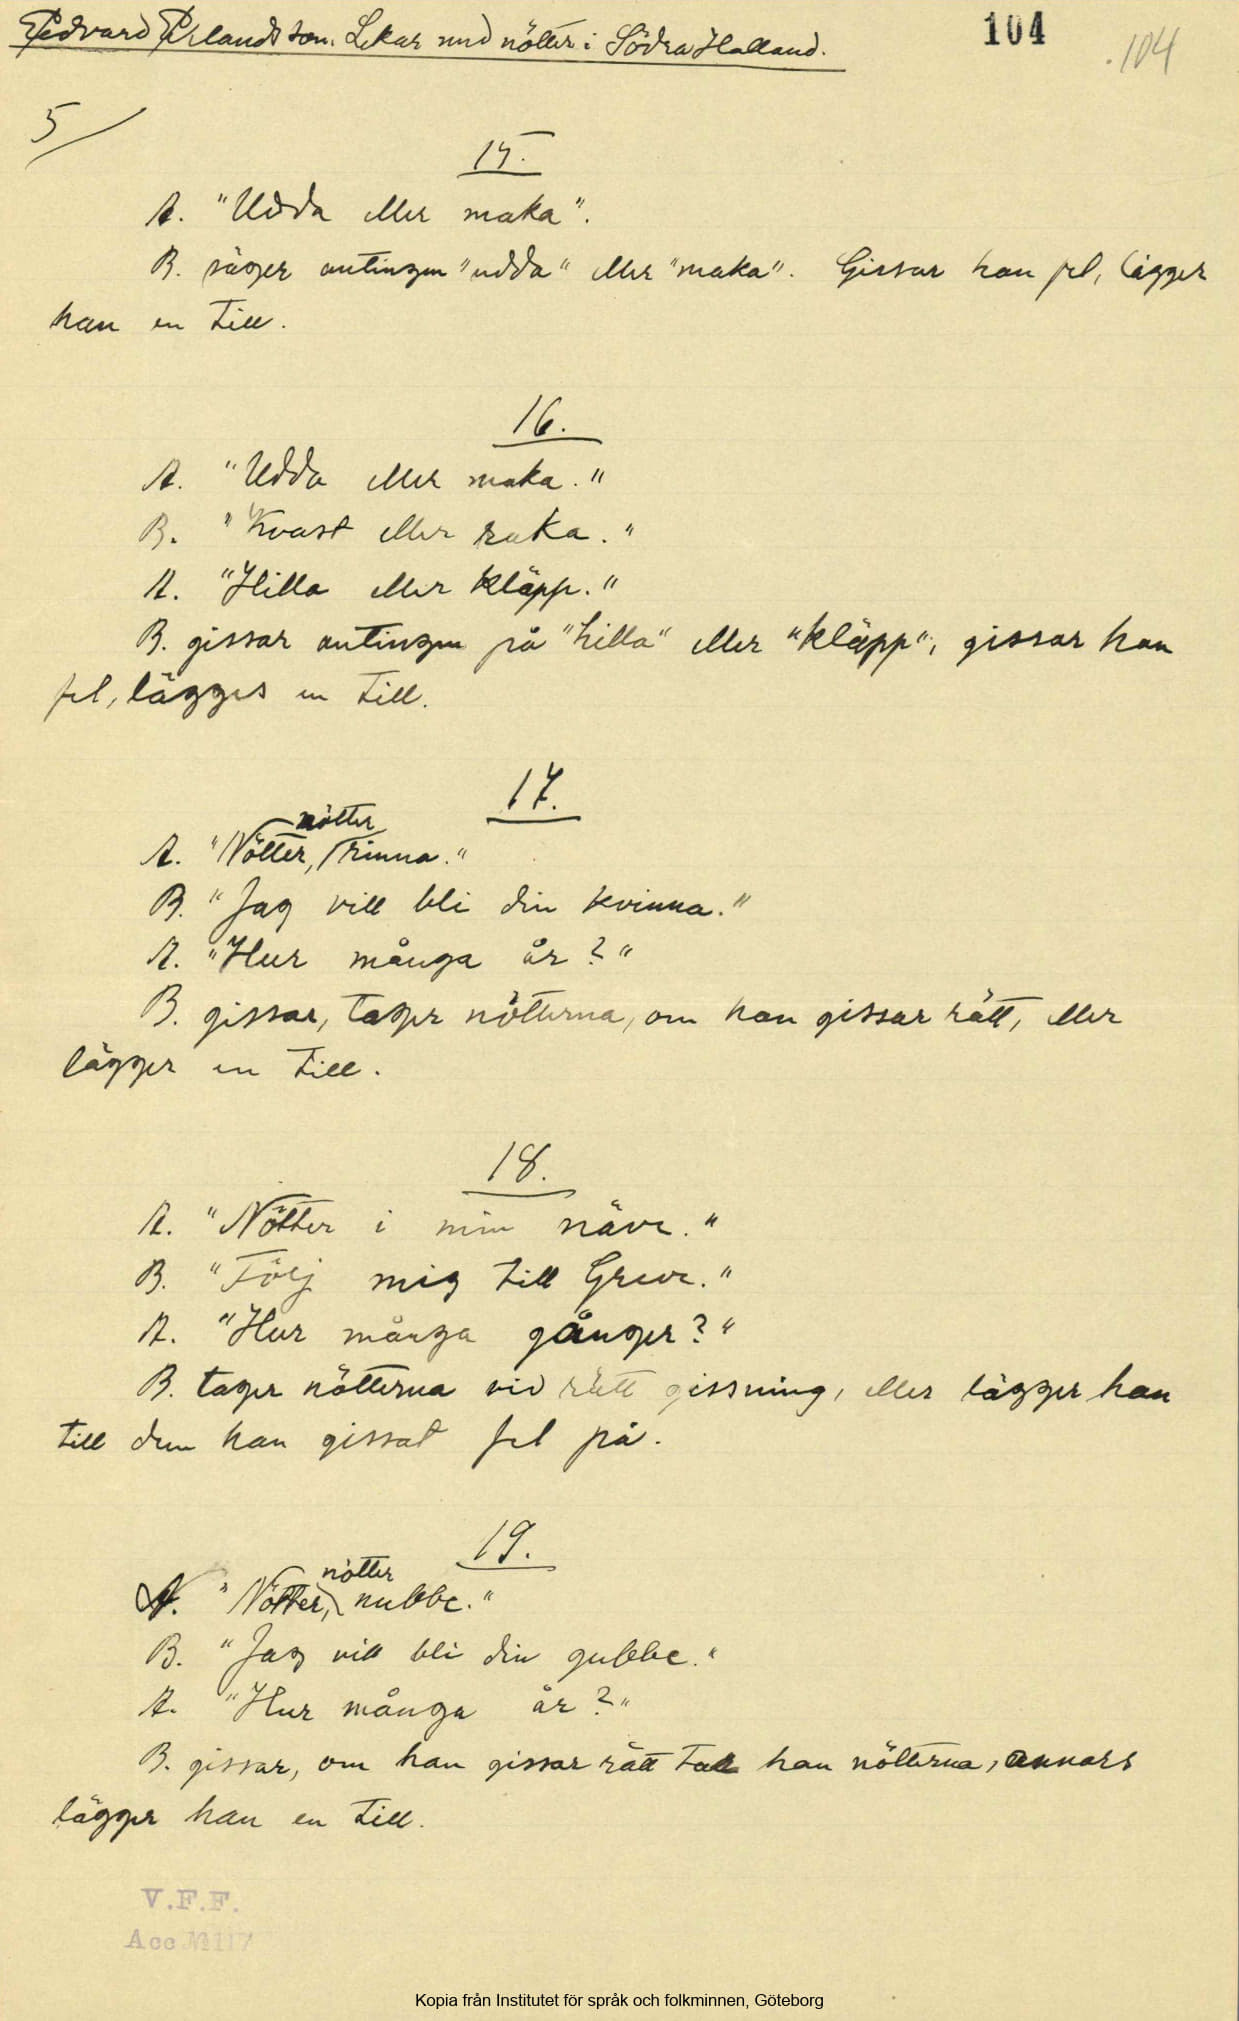 Edvard Erlandsson. Lekar med nötter i Södra Halland. 104 104
5
15.
A. "Udda eller maka".
B. säger antingen "udda" eller "maka". Gissar han fel, lägger
han en till.
16.
A. "Udda eller maka."
B. "Kvast eller raka."
A. "Hilla eller kläpp."
B. gissar antingen på "hilla" eller "kläpp"; gissar han
fel, lägges en till.
17.
nötter
A. "Nötter, rinna."
B. "Jag vill bli din kvinna."
A. "Hur många år?"
B. gissar, tager nötterna, om han gissar rätt, eller
lägger en till.
18.
A. "Nötter i min näve."
B. "Följ mig till Greve."
A. "Hur många gånger?"
B. tager nötterna vid rätt gissning, eller lägger han
till dem han gissat fel på.
19.
nötter
A. "Nötter, nubbe."
B. "Jag vill bli din gubbe."
A. "Hur många år?"
B. gissar, om han gissar rätt tar han nötterna, annars
lägger han en till.
V.F.F.
Acc № 117
Kopia från Institutet för språk och folkminnen, Göteborg